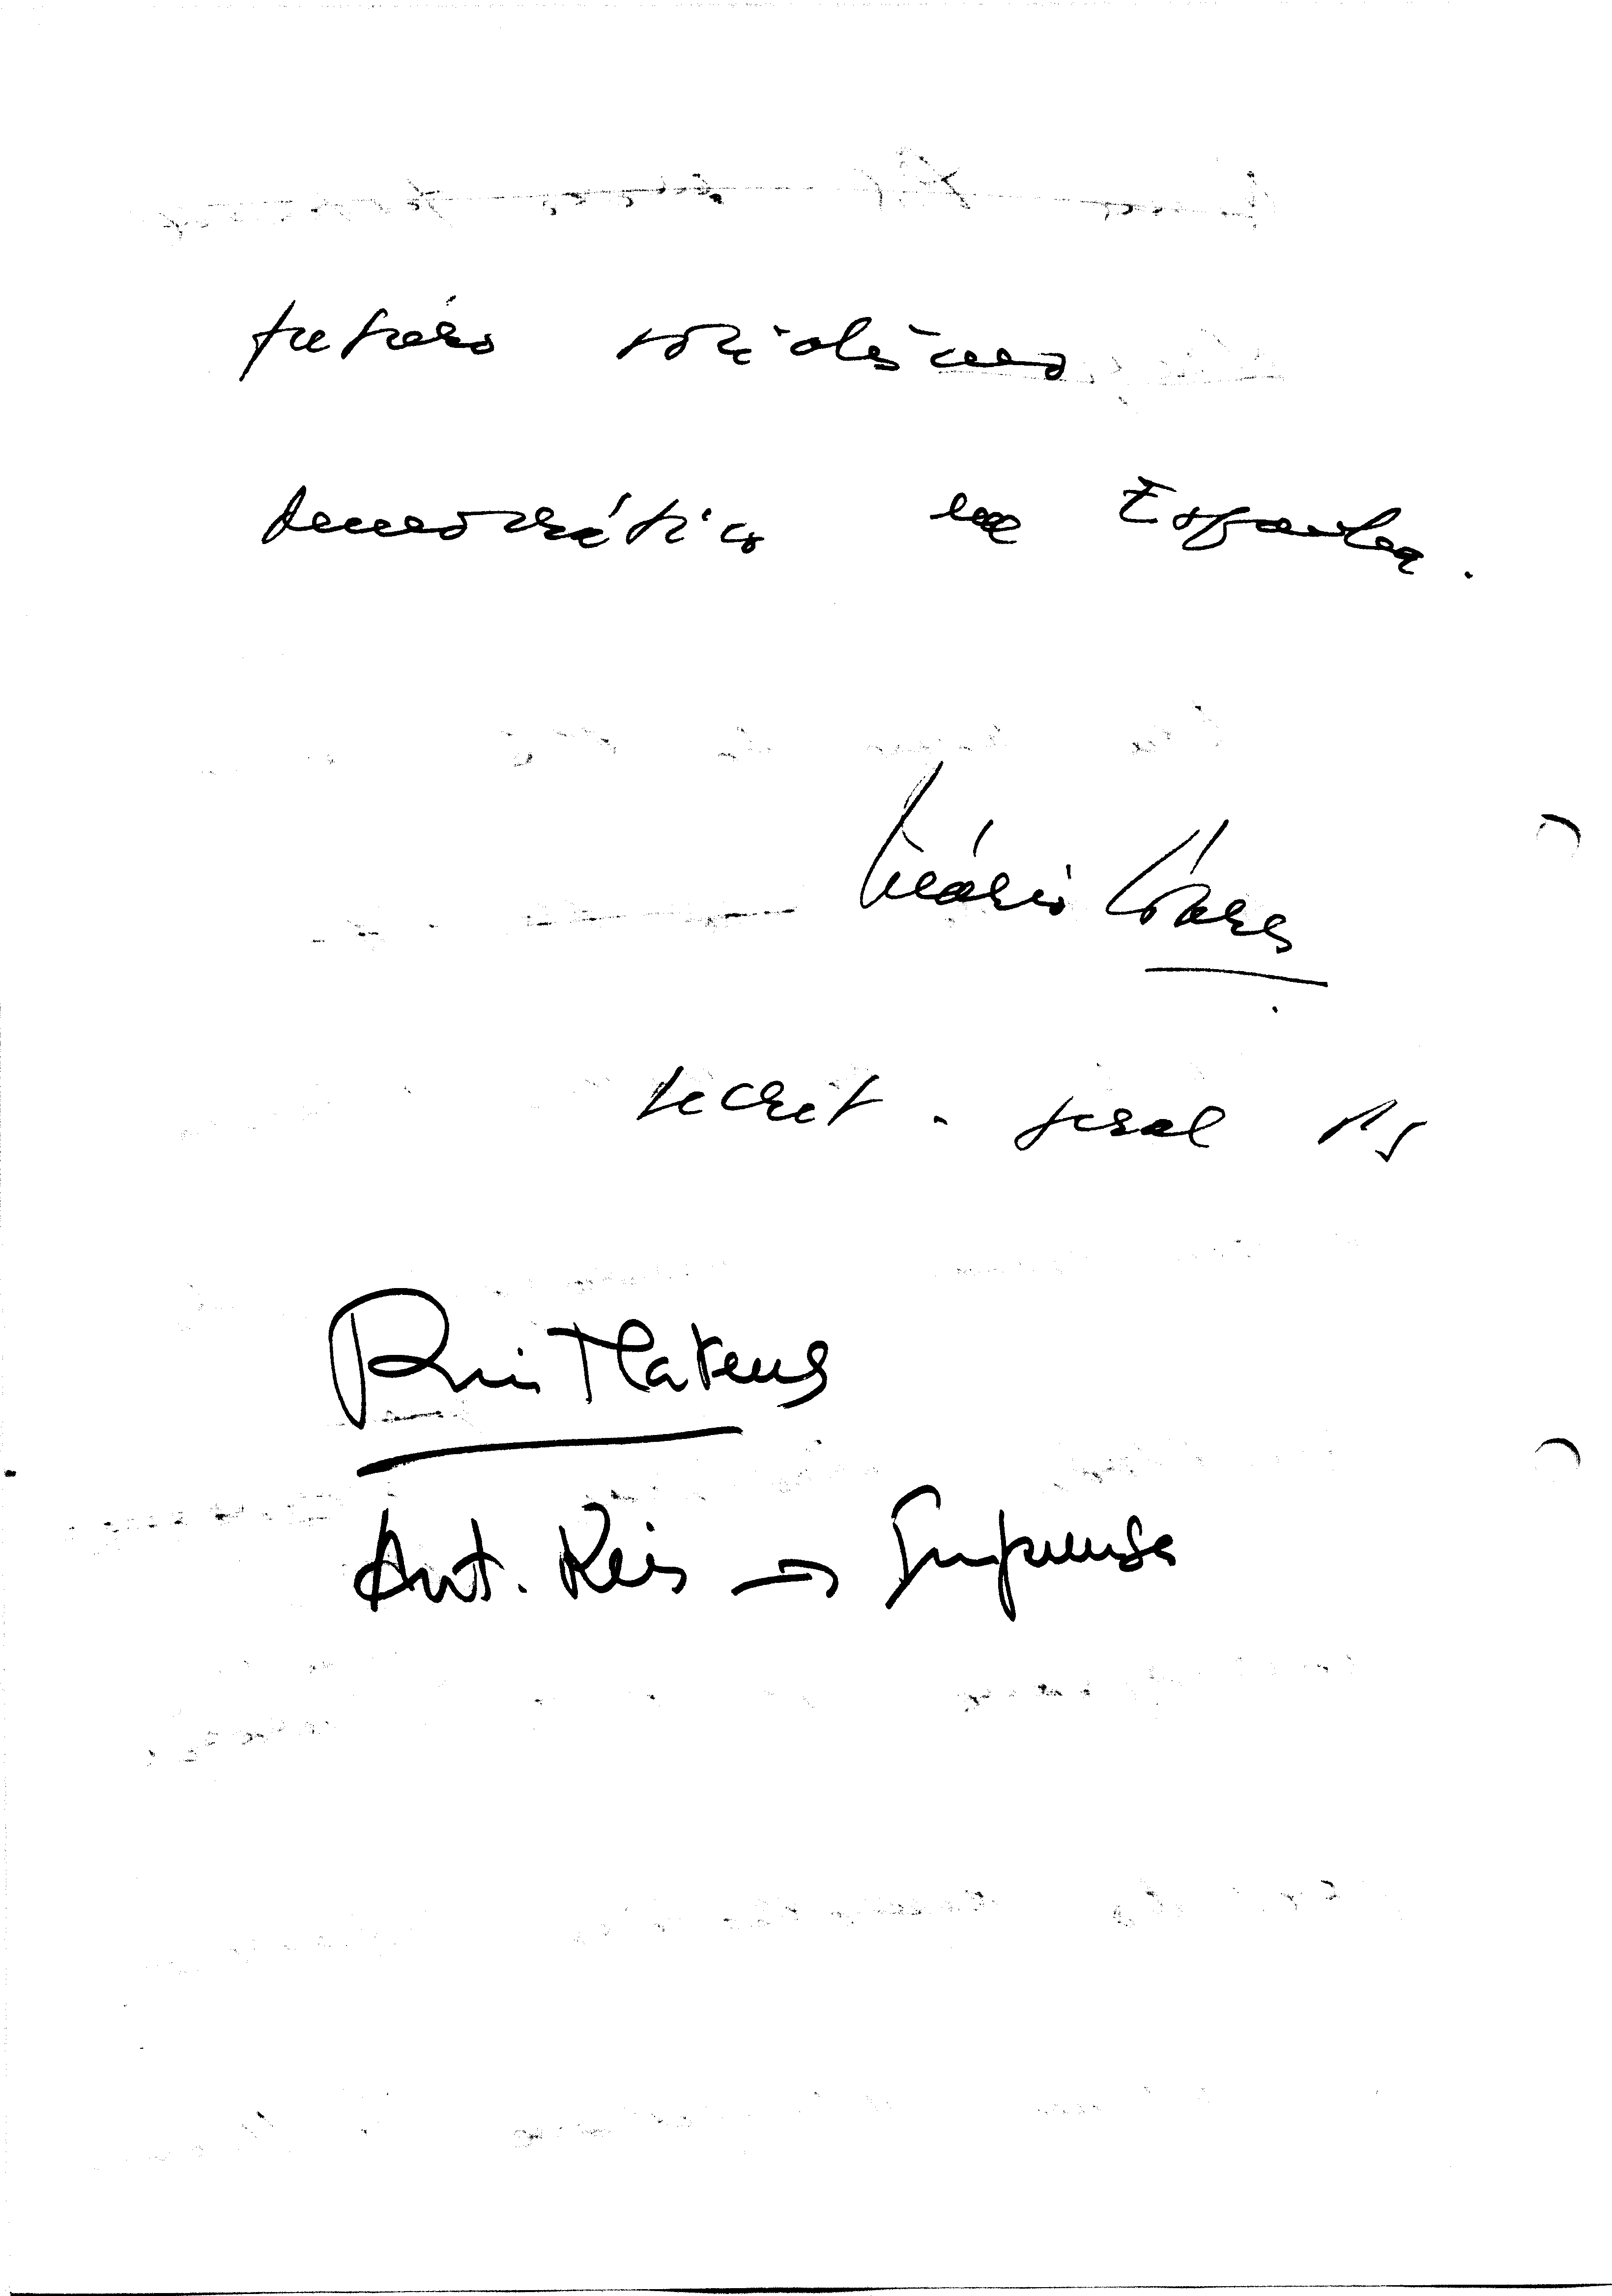 futuro socialismo
democrático em Espanha.
Mário Soares
secret. geral PS
Rui Mateus
Ant. Reis → Imprensa